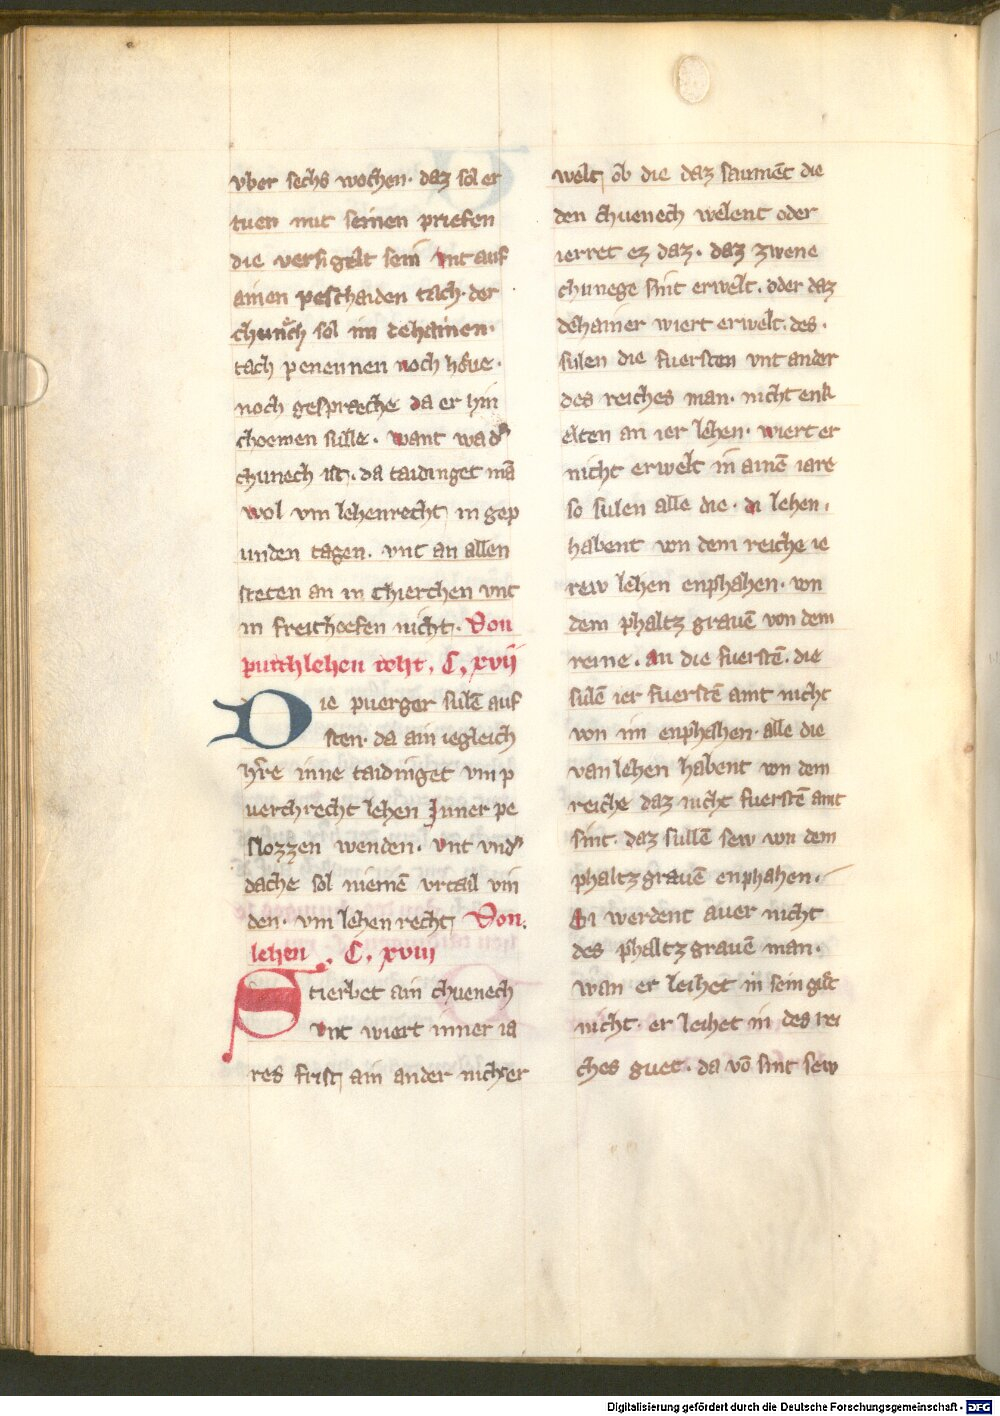 vber sechs wochen· daz sol er
tuen mit seinen priefen
die versigelt sein vnt auf
ainen peschaiden tach· der
chunͦch sol im dehainen·
tach penennen noch hůue·
noch gespræche da er hin
choemen sulle· want wa dˀ
chunech ist· da taidinget mā
wol vm lehenrecht in gep
unden tagen· vnt an allen
steten an in chierchen vnt
in freithoefen nicht· Von
purchlehen reht, C, xvij
Die puerger sulē auf
sten· da ain iegleich
hr̄re inne taidinget vm p
uerchrecht lehen Inner pe
slozzen wenden· vnt vndˀ
dache sol niemē vrtail vin
den· vm lehen recht Von
lehen, C, xviii
Stierbet ain chuenech
vnt wiert inner ia
res frist ain ander nicht er
welt ob die daz saumēt die
den chuenech welent oder
ierret ez daz· daz zwene
chunege sint erwelt· oder daz
dehainer wiert erwelt· des·
sulen die fuersten vnt ander
des reiches man· nicht enk
elten an ier lehen· wiert er
nicht erwelt in ainē iare
so sulen alle die· di lehen·
habent von dem reiche ie
rew lehen enphahen· von
dem phaltz grauē von dem
reine· an die fuerstē· die
sulē ier fuerstē amt nicht
von im enphahen· alle die
van lehen habent von dem
reiche daz nicht fuerstē amt
sint· daz sullē sew von dem
phaltzgrauē enphahen·
Si werdent auer nicht
des phaltzgrauē man·
wan er leihet in sein guͦt
nicht· er leihet in des rei
ches guet· da vō sint sew
Digitalisierung gefördert durch die Deutsche Forschungsgemeinschaft - DFG